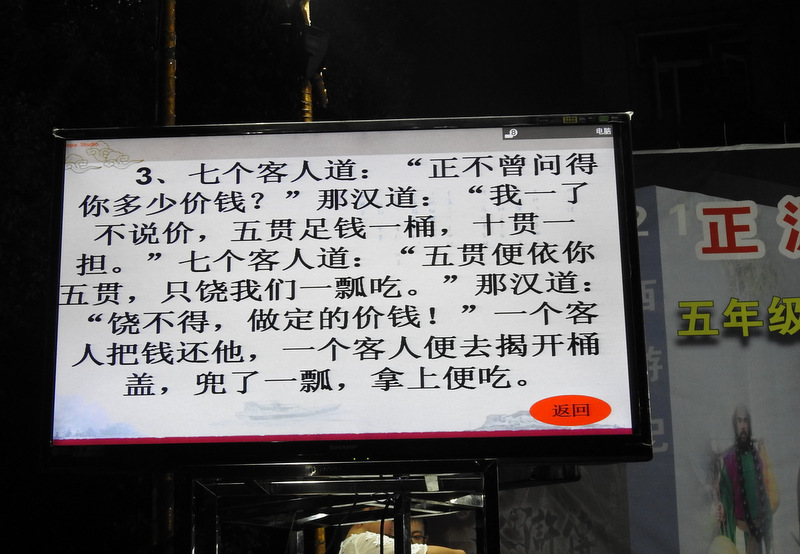 电脑
3、七个客人道：“正不曾问得
你多少价钱？”那汉道：“我一了
不说价，五贯足钱一桶，十贯一
担。”七个客人道：“五贯便依你
五贯，只饶我们一瓢吃。”那汉道：
“饶不得，做定的价钱！”一个客
人把钱还他，一个客人便去揭开桶
盖，兜了一瓢，拿上便吃。
返回
21
正
五年级
西
游
记